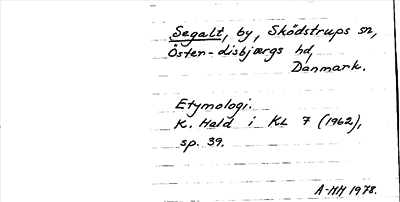 Segalt, by, Sködstrups sn,
Öster-Lisbjærgs hd,
Danmark.
Etymologi.
K. Hald i KL 7 (1962),
sp. 39.
A-MH 1978.